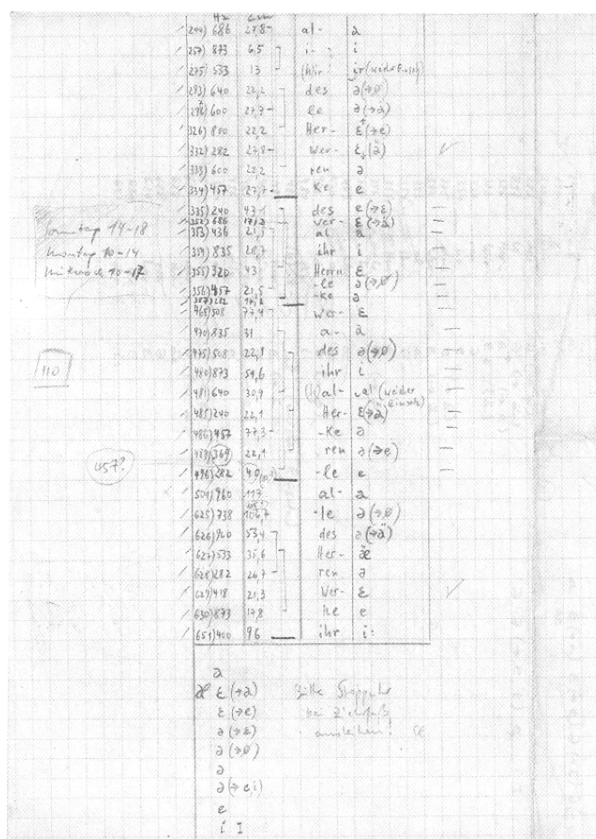 Hz cm
244) 686 27,8 al- a
257) 873 6,5 i- i
275) 533 13 (h)ir
293) 640 22,2 des ə(→ø)
600 27,7 le ə(→ä)
326) 880 22,2 Her- ɛ(→e)
332) 282 27,8 Wer- ɛ(ä)
333) 600 22,2 ren ə
334) 457 27,7 Ke e
335) 240 43 des e(→ɛ)
352) 686 17,2 Ver- ɛ(→ä)
353) 436 21,5 al a
354) 835 28,7 ihr i
355) 320 43 Herrn ɛ
356) 457 21,5 -le ə(→ø)
-ke ə
465) 508 77,4 Wer- ɛ
470) 835 31 a- a
475) 508 22,1 des ə(→ø)
480) 873 51,6 ihr i
481) 640 30,9 (h)al- al (weicher
485) 240 22,1 Her- ɛ(→a)
486) 457 77,3 -Ke ə
488) 369 22,1 ren ə(→e)
496) 282 40 -le e
501) 960 117 al- a
625) 738 106,7 -le ə(→ø)
626) 960 53,4 des ə(→ä)
627) 533 35,6 Her- æ
628) 282 26,7 ren ə
629) 418 21,3 Ver- ɛ
630) 873 17,8 Ke e
651) 400 96 ihr i:
Sonntag 14-18
Montag 10-14
Mittwoch 10-17
110
457?
a
æ ɛ(→a)
ɛ(→e)
ə(→ɛ)
ə(→ø)
ə
ə(→ei)
e
i I
Bitte Stoppuhr
ausleihen!